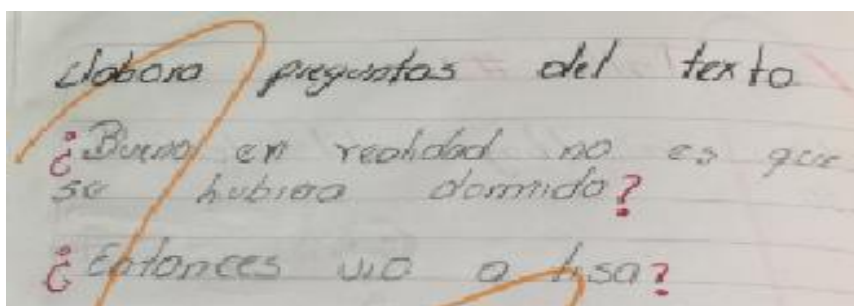 elabora preguntas del texto
¿Bueno en realidad no es que
se hubiera dormido?
¿Entonces vio a lisa?